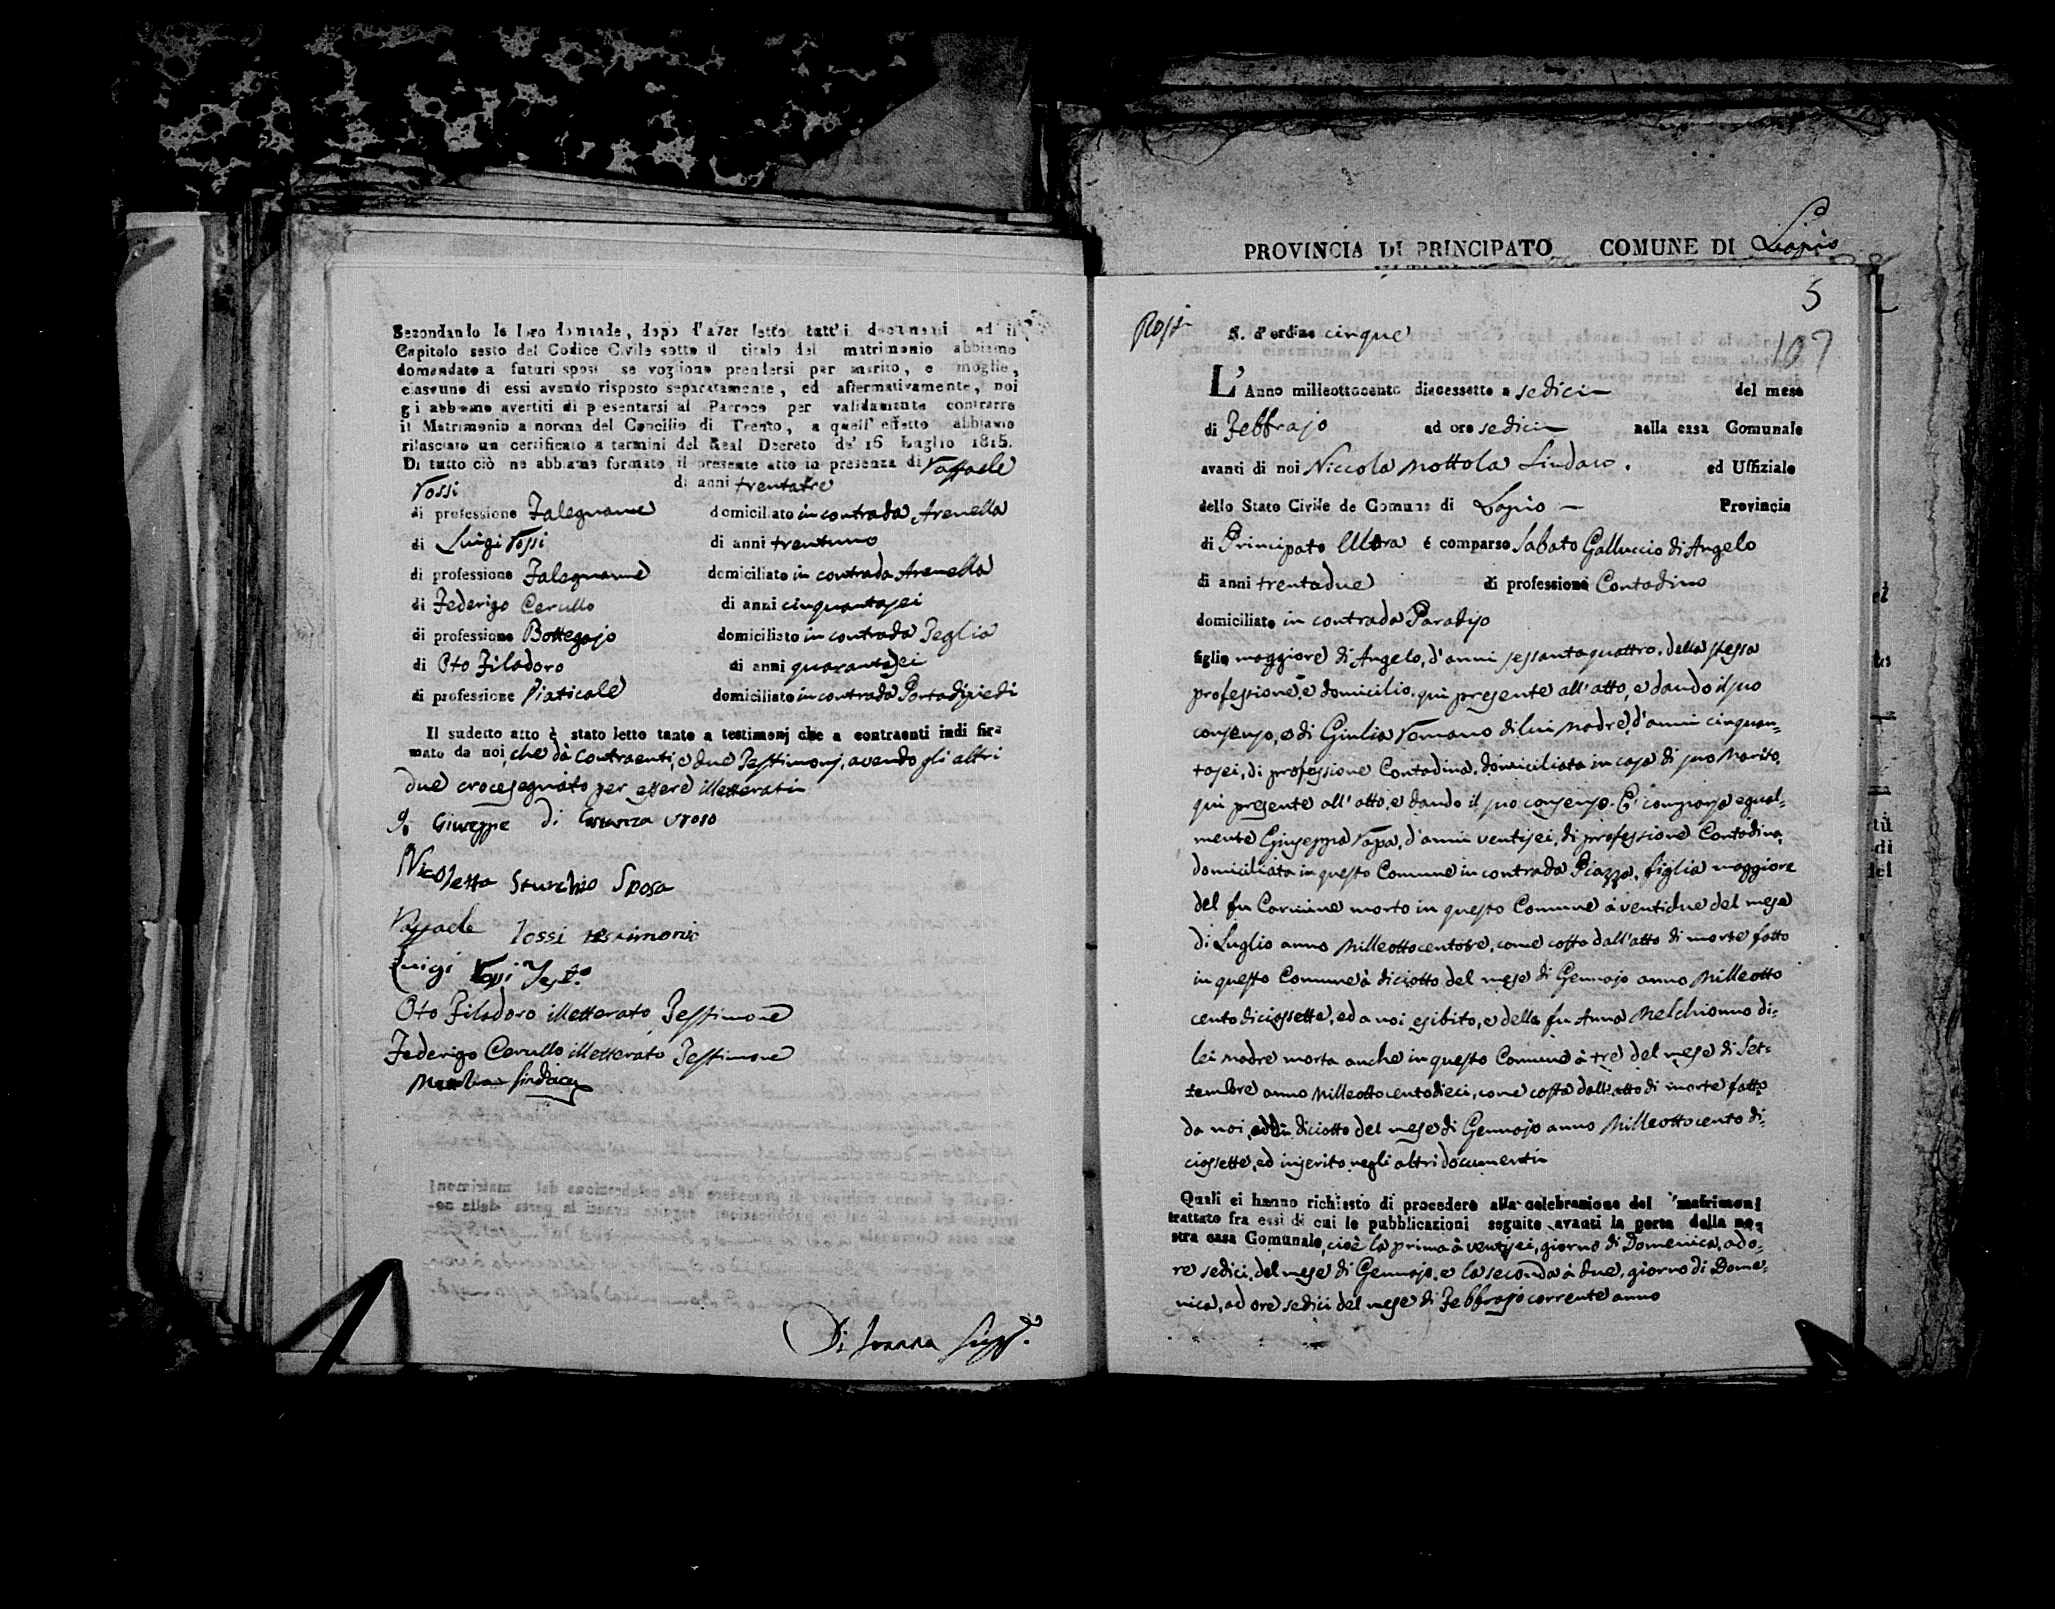 Secondando le loro domande, dopo d'aver letto tutt'i documenti ed il
Capitolo sesto del Codice Civile sotto il titolo del matrimonio abbiamo
domandato a futuri sposi se vogliono prendersi per marito, e moglie,
ciascuno di essi avendo risposto separatamente, ed affermativamente, noi
gi abbiamo avertiti di presentarsi al Parroco per validamente contrarre
il Matrimonio a norma del Concilio di Trento, a quell'effetto abbiamo
rilasciato un certificato a termini del Real Decreto de' 16 Luglio 1815.
Di tutto ciò ne abbiamo formato il presente atto in presenza di Raffaele
Rossi di anni trentatre
di professione Falegname domiciliato in contrada Arenella
di Luigi Rossi di anni trentuno
di professione Falegname domiciliato in contrada Arenella
di Federigo Cerullo di anni cinquantasei
di professione Bottegajo domiciliato in contrada Teglia
di Oto Filadoro di anni quarantasei
di professione Viaticale domiciliato in contrada Portadipiedi
Il sudetto atto è stato letto tanto a testimonj che a contraenti indi fir-
mato da noi, che dà Contraenti, e due Testimonj, avendo gli altri
due crocesegnato per essere illetterati
Giuseppe di
Nicoletta Sturchio Sposa
Raffaele Rossi testimonio
Luigi Rossi Test.o
Oto Filadoro illetterato Testimone
Federigo Cerullo illetterato Testimone
Mottola Sindaco
Di Ioanna
PROVINCIA DI PRINCIPATO COMUNE DI Lapio
5
107
N. d'ordine cinque
L'Anno milleottocento diecessette a sedici del mese
di Febbrajo ad ore sedici nella casa Comunale
avanti di noi Niccola Mottola Sindaco. ed Uffiziale
dello Stato Civile de Comune di Lapio Provincia
di Principato Ultra é comparso Sabato Galluccio di Angelo
di anni trentadue di professione Contadino
domiciliato in contrada Paradiso
figlio maggiore di Angelo, d'anni sessantaquattro, della stessa
professione, e domicilio, qui presente all'atto, e dando il suo
consenso, e di Giulia Romano di lui Madre, d'anni cinquan-
tasei, di professione Contadina, domiciliata in casa di suo Marito,
qui presente all'atto, e dando il suo consenso. E' comparsa egual-
mente Giuseppa Papa, d'anni ventisei, di professione Contadina,
domiciliata in questo Comune in contrada Piazza, figlia maggiore
del fu Carmine morto in questo Comune à ventidue del mese
di Luglio anno Milleottocentotre, come costa dall'atto di morte fatto
in questo Comune à diciotto del mese di Gennajo anno Milleotto
cento diciossette, ed a noi esibito, e della fu Anna Melchionno di-
lei madre morta anche in questo Comune à tre del mese di Set-
tembre anno Milleottocentodieci, come costa dall'atto di morte fatto
da noi diciotto del mese di Gennajo anno Milleottocento di-
ciossette, ed inserito negli altri documenti
Quali ci hanno richiesto di procedere alla celebrazione del matrimoni
trattato fra essi di cui le pubblicazioni seguite avanti la porta della no-
stra casa Comunale, cioè la prima à ventisei, giorno di Domenica, ad o-
re sedici, del mese di Gennajo, e la seconda à due, giorno di Dome-
nica, ad ore sedici del mese di Febbrajo corrente anno